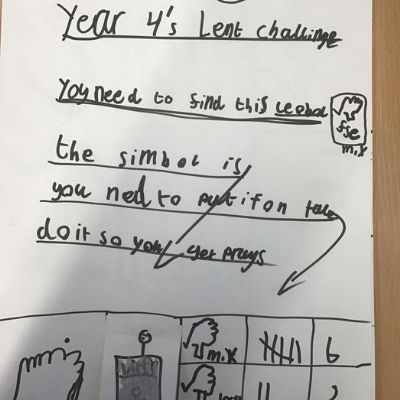 Year 4's Lent challinge
You need to find this
m.x
the simbol is
you ned to put if on
do it so you get prays
m.x
6